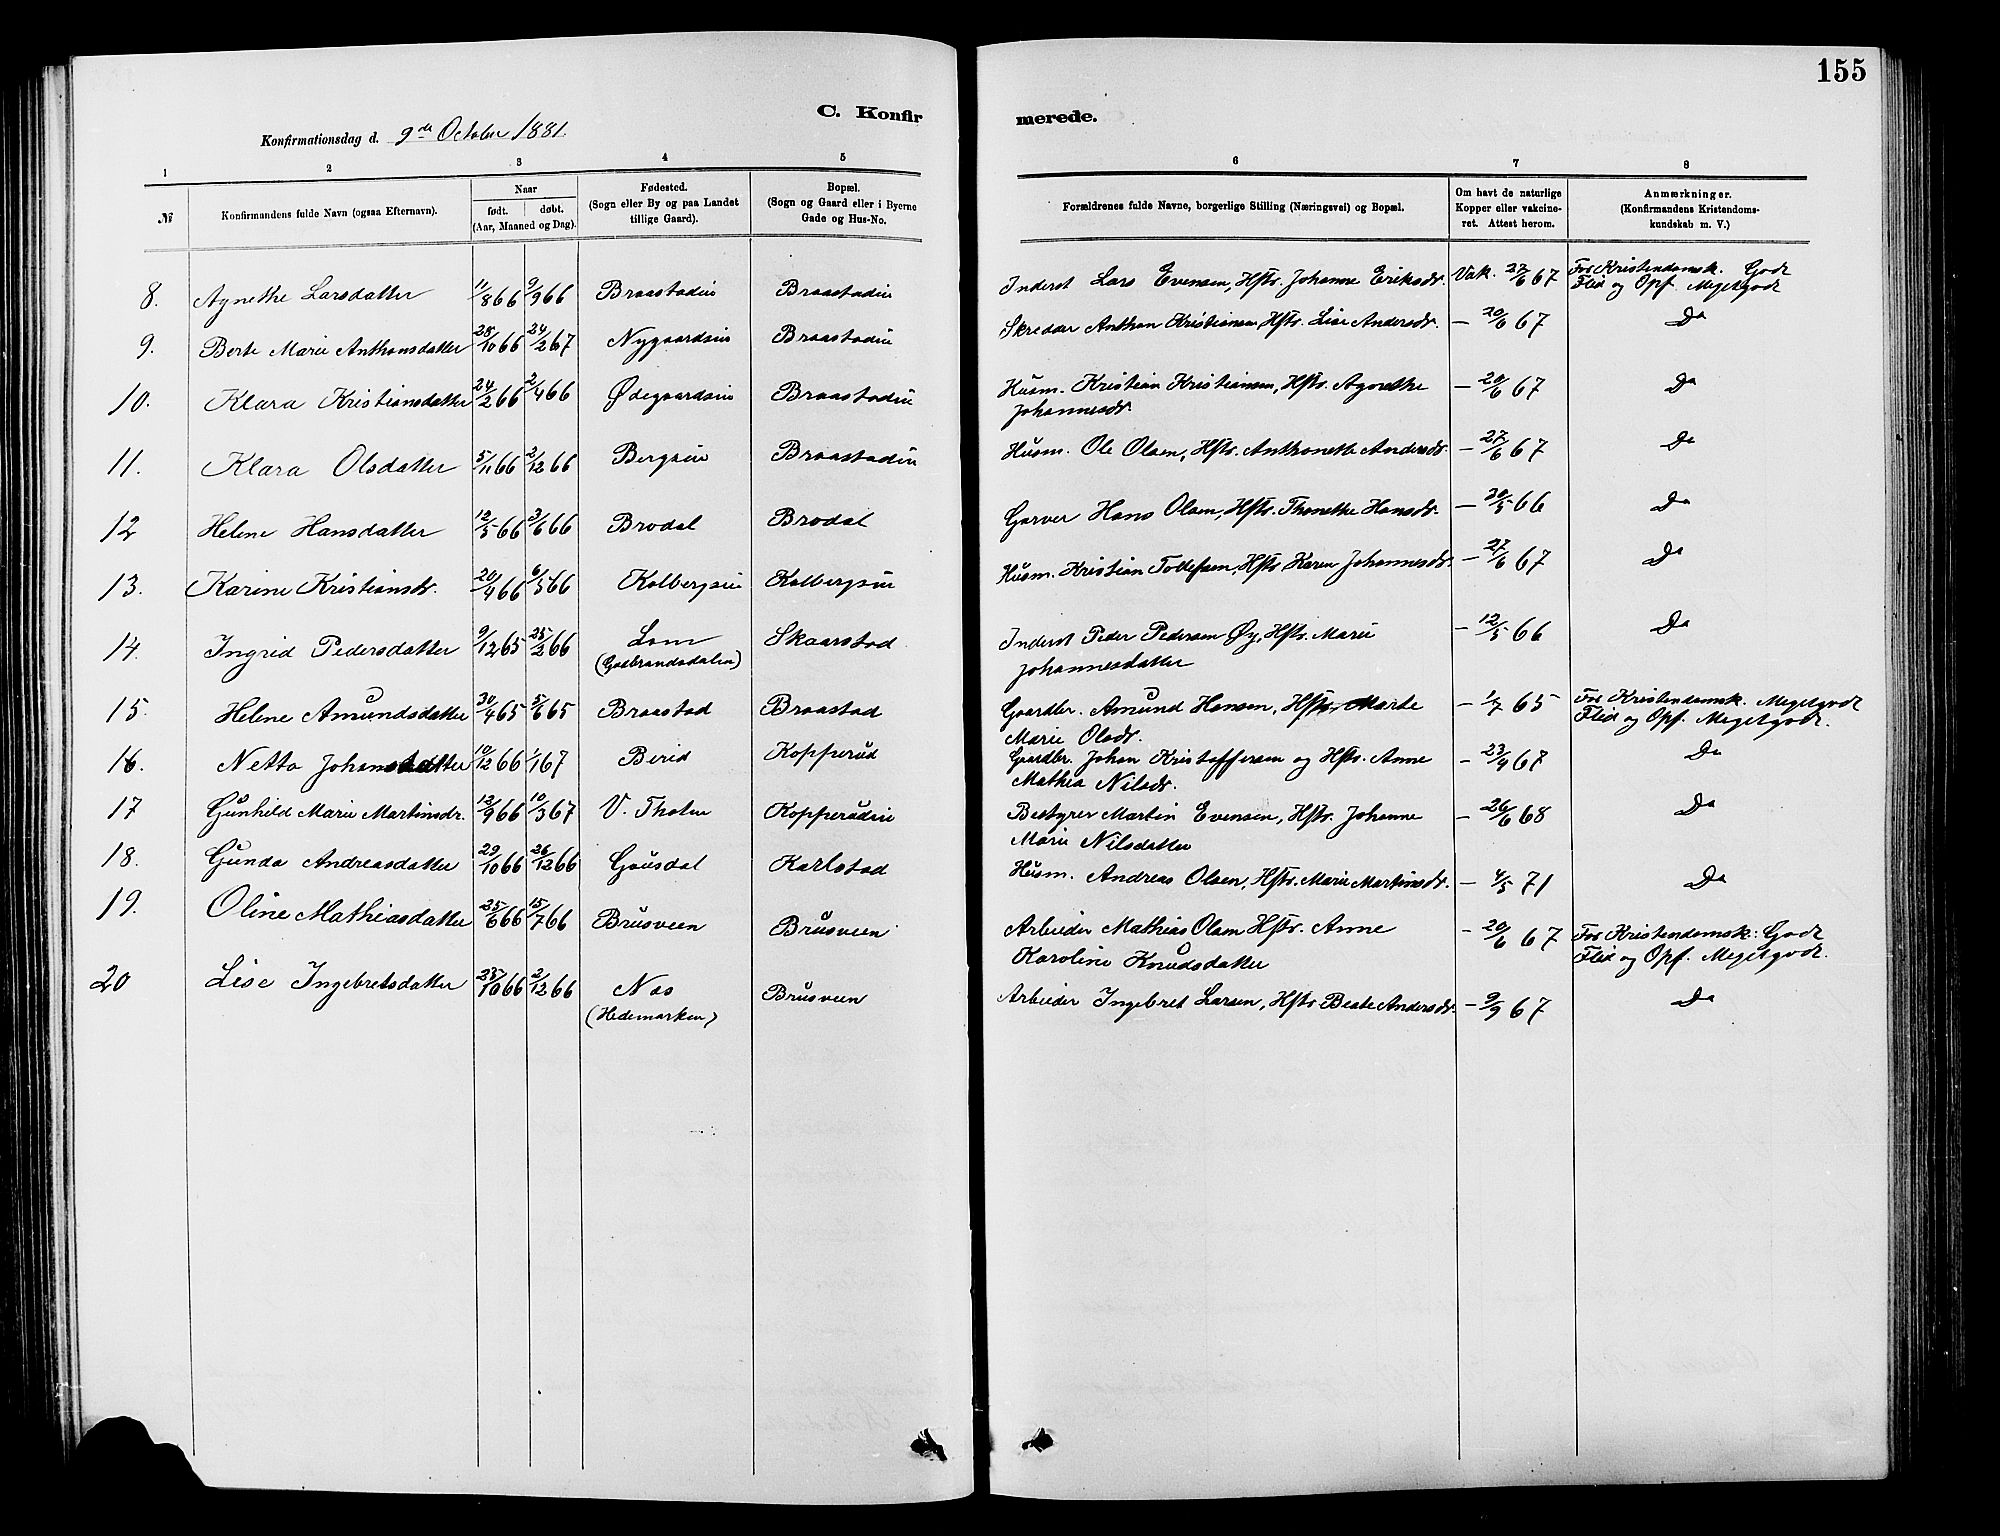 155
C. Konfirmerede.
Konfirmationsdag d. 9de October 1881.
1 2 3 4 5 6 7 8
№ Konfirmandens fulde Navn (ogsaa Efternavn). Naar født. døbt. (Aar, Maaned og Dag). Fødested. (Sogn eller By og paa Landet tillige Gaard). Bopæl. (Sogn og Gaard eller i Byerne Gade og Hus-No. Forældrenes fulde Navne, borgerlige Stilling (Næringsvei) og Bopæl. Om havt de naturlige Kopper eller vakcineret. Attest herom. Anmærkninger. (Konfirmandens Kristendomskundskab m. V.)
8. Agnethe Larsdatter 11/8 66 9/9 66 Braastadeie Braastadeie Inderst Lars Evensen, Hstr. Johanne Eriksdr. Vak. 27/6 67 For Kristendomsk. Godt
Flid og Opf. Megetgodt
9. Berte Marie Anthonsdatter 28/10 66 24/2 67 Nygaardseie Braastadeie Skredder Anthon Kristiansen Hstr. Lise Andersdr. — 20/6 67 Do
10. Klara Kristiansdatter 24/2 66 2/4 66 Ødegaardseie Braastadeie Husm. Kristian Kristiansen, Hstr. Agnethe — 20/6 67 Do
Johannesdr.
11. Klara Olsdatter 5/11 66 2/12 66 Bergseie Braastadeie Husm. Ole Olsen, Hstr. Anthonette Andersdr. — 27/6 67 Do
12 Helene Hansdatter 12/5 66 3/6 66 Brodal Brodal Garver Hans Olsen, Hstr. Thonethe Hansdr. — 20/5 66 Do
13. Karine Kristiansdr. 20/4 66 6/5 66 Kolbergseie Kolbergseie Husm. Kristian Tollefsen, Hstr. Karen Johannesdr. — 27/6 67 Do
14. Ingrid Pedersdatter 9/12 65 25/2 66 Lom Skaarstad Inderst Peder Pedersen Øy, Hstr. Marie — 12/5 66 Do
(Gudbrandsdalen) Johannesdatter
15. Helene Amundsdatter 30/4 65 5/6 65 Braastad Braastad Gaardbr. Amund Hansen, Hstr. Marte — 1/7 65 For Kristendomsk. Megetgodt
Marie Olsdr. Flid og Opf. Megetgodt.
16. Netta Johansdatter 10/12 66 1/1 67 Birid Kopperud Gaardbr. Johan Kristoffersen og Hstr. Anne — 23/4 67 Do
Mathea Nilsdr.
17 Gunhild Marie Martinsdr. 12/9 66 10/3 67 V. Thoten Kopperudeie Bestyrer Martin Evensen, Hstr. Johanne — 26/6 68 Do
Marie Nilsdatter
18. Gunda Andreasdatter 29/10 66 26/12 66 Gausdal Karlstad Husm. Andreas Olsen, Hstr. Marie Martinsdr. — 4/5 71 Do
19. Oline Mathiasdatter 25/6 66 15/7 66 Brusveen Brusveen Arbeider Mathias Olsen Hstr. Anne — 20/6 67 For Kristendomsk: Godt
Karoline Knudsdatter Flid og Opf. Megetgodt.
20 Lise Ingebretsdatter 10 66 2/12 66 Nes Brusveen Arbeider Ingebret Larsen, Hstr. Beate Andersdr. — 9/9 67 Do
(Hedemarken)